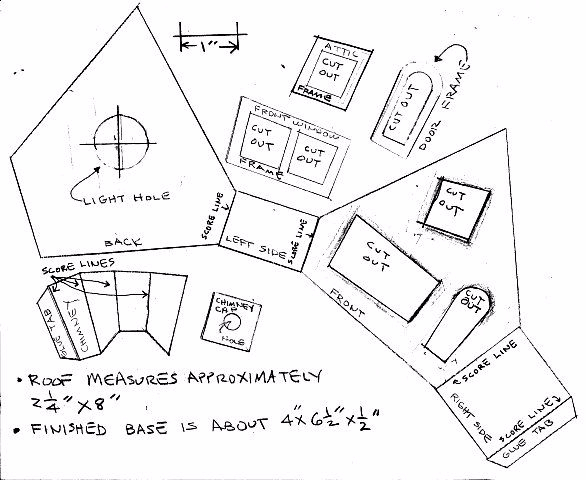 1"
ATTIC
CUT
OUT
FRAME
CUT OUT
DOOR FRAME
FRONT WINDOW
CUT
OUT
CUT
OUT
FRAME
LIGHT HOLE
BACK
SCORE LINE
LEFT SIDE
SCORE LINE
CUT
OUT
CUT
OUT
CUT
OUT
FRONT
SCORE LINE
RIGHT SIDE
SCORE LINE
GLUE TAB
SCORE LINES
GLUE TAB
CHIMNEY
CHIMNEY
CAP
HOLE
• ROOF MEASURES APPROXIMATELY
2 1/4" X 8"
• FINISHED BASE IS ABOUT 4" X 6 1/2" X 1/2"